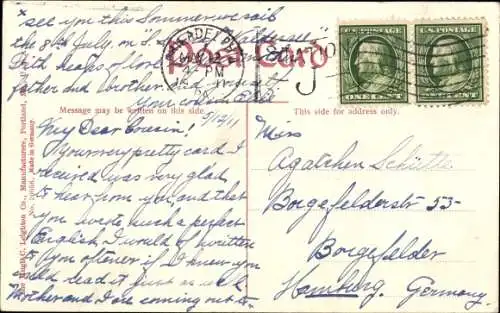 see you this Sommer we sail
the 8th July, on "S.S.
With heaps of love
father and brother.
Your cousin
Post Card
PHILADELPHIA
PM
PA
STATION
J
U.S. POSTAGE
ONE CENT
U.S. POSTAGE
Message may be written on this side.
This side for address only.
The Hugh C. Leighton Co., Manufacturers, Portland,
Made in Germany.
5/12/11
My Dear Cousin!
Your very pretty card I
received was very glad
to hear from you, and that
you wrote such a perfect
English I would of written
to you oftener if I knew you
could read it just as well
Mother and I are coming out to
Miss
Agatchen Schütte
Borgefelderstr 53-
Borgefelder
Hamburg. Germany.